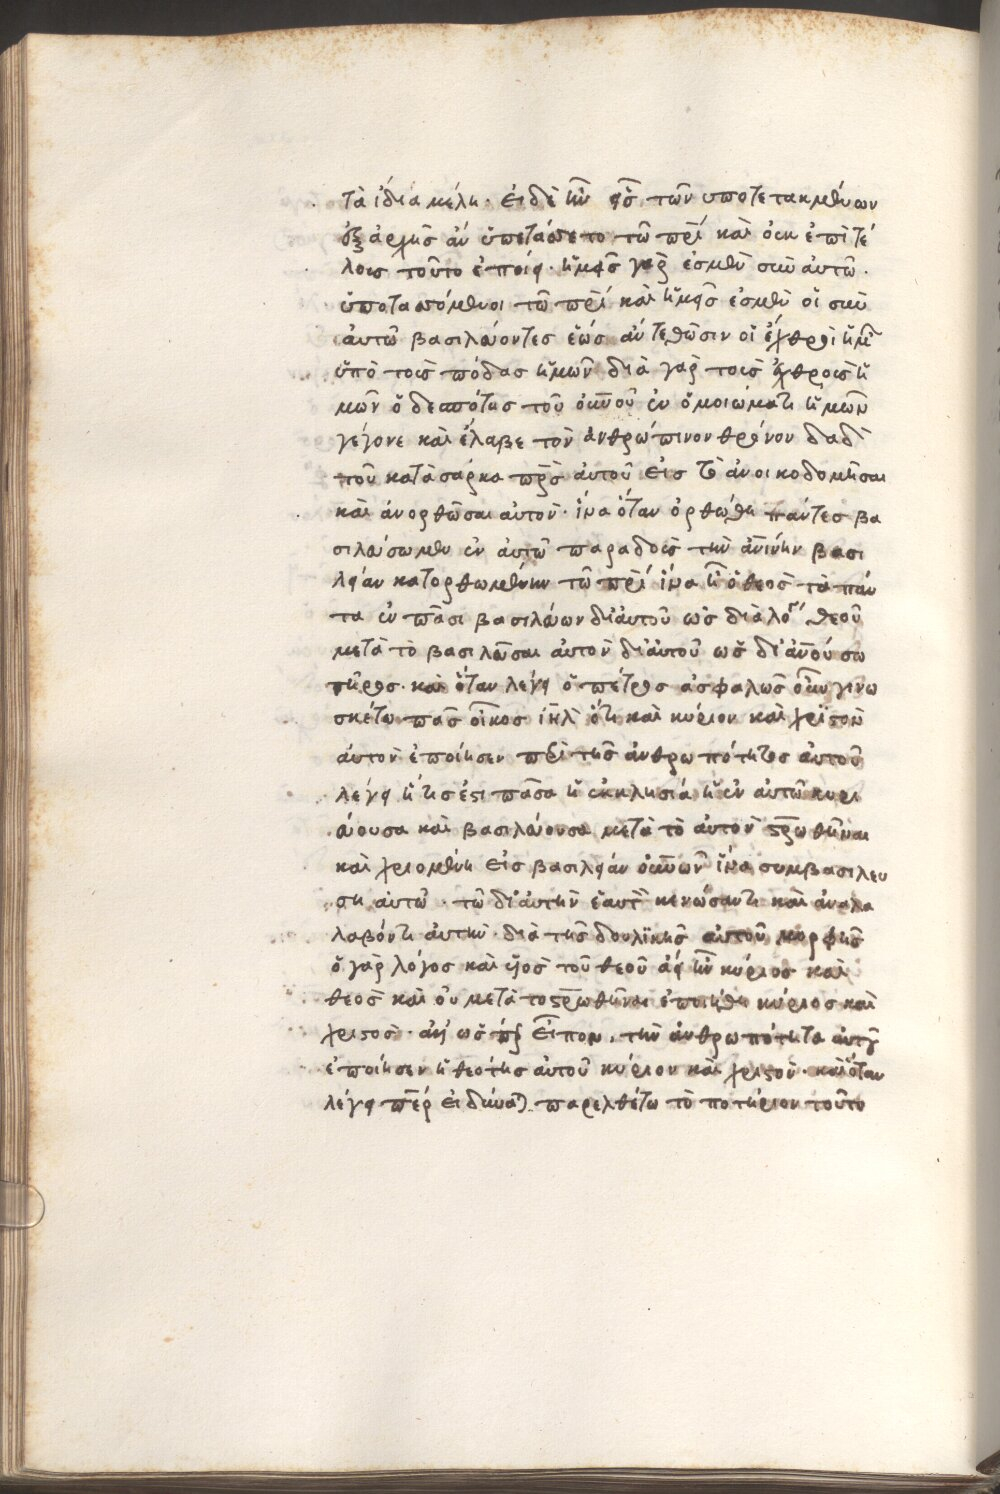 τὰ ἴδια μέλη· εἰ δὲ ἦν εἷς τῶν ὑποτεταγμένων
ἐξ ἀρχῆς ἂν ὑπετάσσετο τῶ πρί καὶ οὐκ ἐπὶ τέ
λους τοῦτο ἐποίει· ἡμεῖς γάρ ἐσμεν σὺν αὐτῶ
ὑποτασσόμενοι τῶ πρί καὶ ἡμεῖς ἐσμεν οἱ σὺν
αὐτῶ βασιλεύοντες ἕως ἂν τεθῶσιν οἱ ἐχθροὶ ἡμ
ὑπὸ τοὺς πόδας ἡμῶν διὰ γὰρ τοὺς ἐχθροὺς ἡ
μῶν ὁ δεσπότης τοῦ οὐνοῦ ἐν ὁμοιώματι ἡμῶν
γέγονε καὶ ἔλαβε τὸν ἀνθρώπινον θρόνον δαδ
τοῦ κατὰ σάρκα πρς αὐτοῦ εἰς τὸ ἀνοικοδομῆσαι
καὶ ἀνορθῶσαι αὐτόν· ἵνα ὅταν ὀρθωθῆ πάντες βα
σιλεύσωμεν ἐν αὐτῶ παραδοῖ τὴν ἀνίνην βασι
λείαν κατορθωμένην τῶ πρί ἵνα ἦ ὁ θεὸς τὰ πάν
τα ἐν πᾶσι βασιλεύων δι αὐτοῦ ὡς διὰ λό θεοῦ
μετὰ τὸ βασιλεῦσαι αὐτὸν δι αὐτοῦ ὡς δι ἀνού σω
τῆρος· καὶ ὅταν λέγει ὁ πέτρος ἀσφαλῶς οὖν γινω
σκέτω πᾶς οἶκος ιηλ ὅτι καὶ κύριον καὶ χριστὸν
αὐτὸν ἐποίησεν περὶ τῆς ἀνθρωπότητος αὐτοῦ
λέγει ἥτις ἐστι πᾶσα ἡ ἐκκλησία ἡ ἐν αὐτῶ κυρι
εύουσα καὶ βασιλεύουσα μετὰ τὸ αὐτὸν στρωθῆναι
καὶ χριομένη εἰς βασιλείαν οὐνῶν ἵνα συμβασιλευ
ση αὐτῶ· τῶ δι αὐτὴν ἑαυτ κενώσαντι καὶ ἀναλα
λαβόντι αὐτὴν διὰ τῆς δουλικῆς αὐτοῦ μορφῆς
ὁ γὰρ λόγος καὶ υἱὸς τοῦ θεοῦ ἀεὶ ἦν κύριος καὶ
θεὸς καὶ οὐ μετὰ το στρωθῆναι ἐποιήθη κύριος καὶ
χριστὸς· ἀλλ ὡς εἶπον, τὴν ἀνθρωπότητα αὐτοῦ
ἐποίησεν ἡ θεότης αὐτοῦ κύριον καὶ χριστὸν· καὶ ὅταν
λέγει περ εἰ δύνατ παρελθέτω τὸ ποτήριον τοῦτο